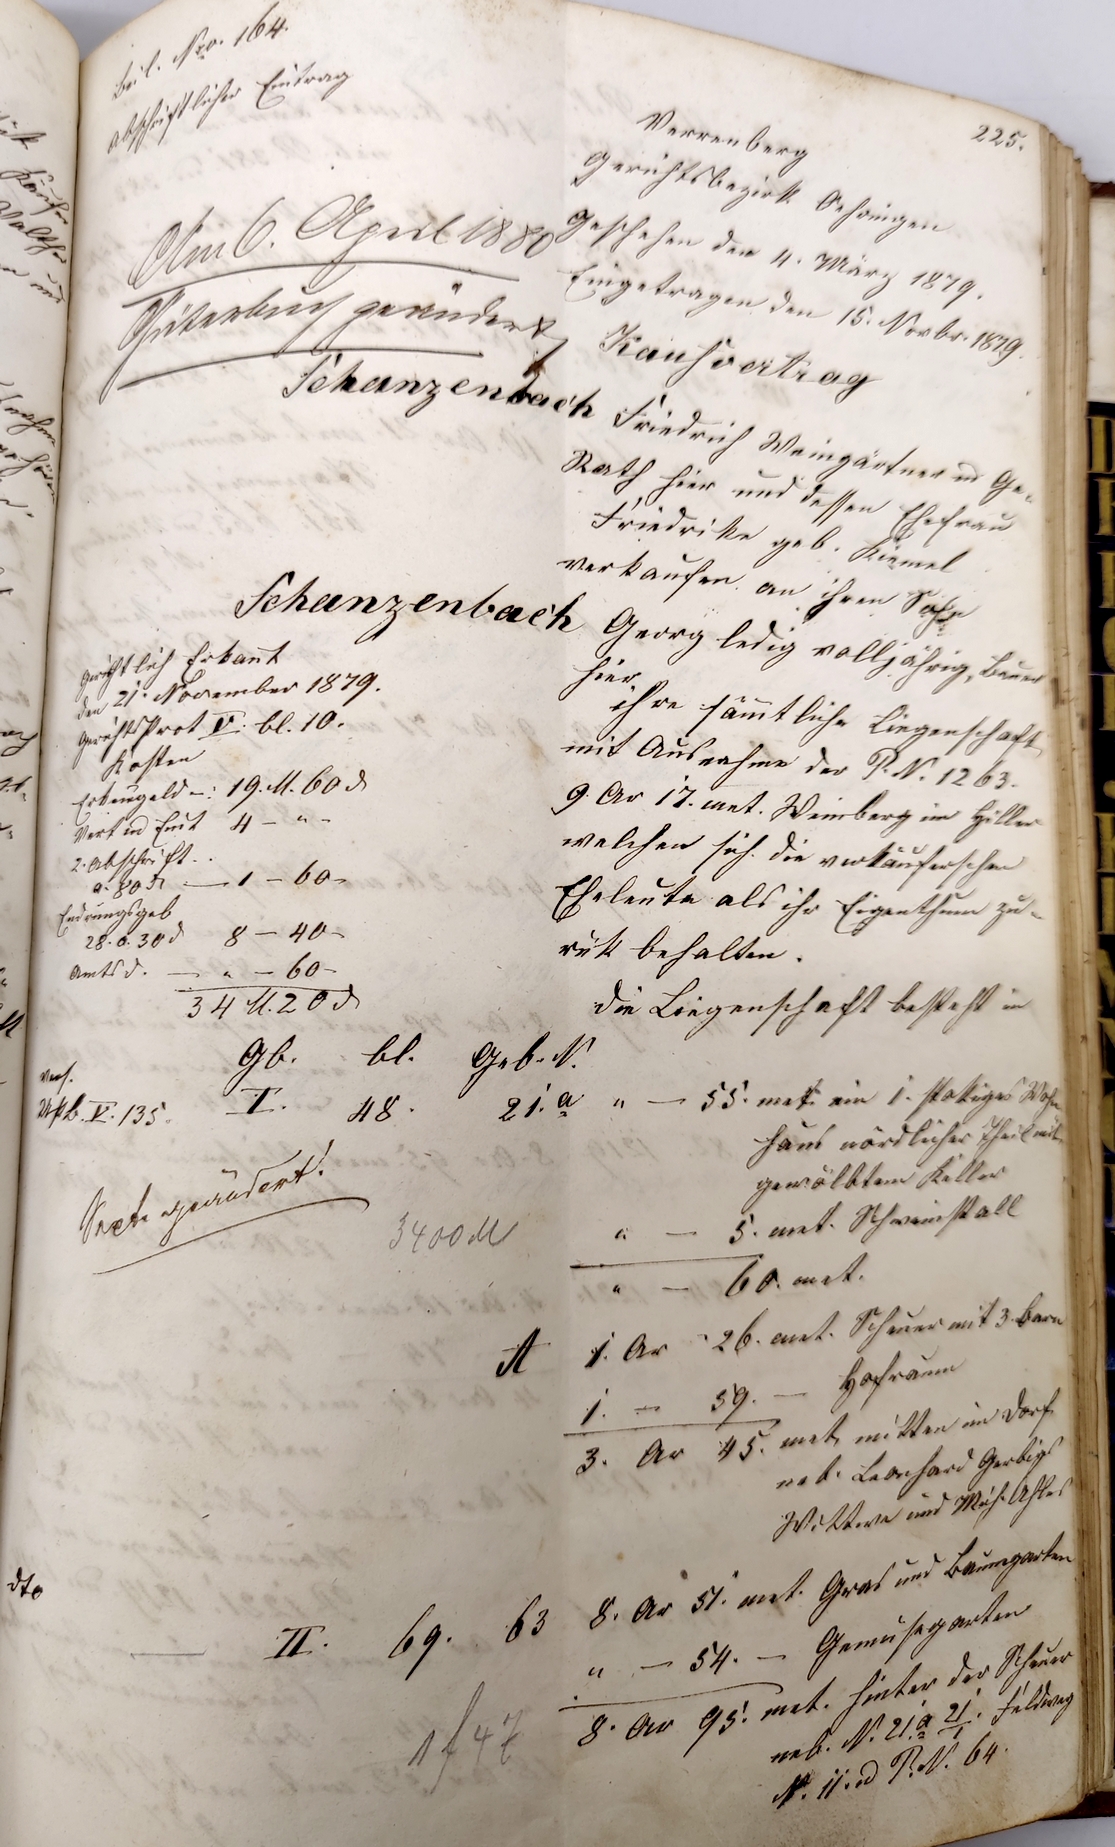 225.
Beil. Nro. 164.
Abschriftlicher Eintrag
Verrenberg
Gerichtsbezirk Oehringen
Geschehen den 4. März 1879.
Eingetragen den 15. Novbr. 1879.
Am 6. April 1880
Güterbuch geändert
Kaufvertrag
Schanzenbach Friedrich Weingärtner Ge-
Rath hier und dessen Ehefrau
Friedrike geb. Kiemel
verkaufen an ihren Sohn
Schanzenbach Georg ledig volljährig, Bauer
hier
ihre sämmtliche Liegenschaft
mit Ausnahme der P.N. 1263.
9. Ar 17. met. Weinberg im Hiller
welchen sich die verkäuferschen
Eheleute als ihr Eigenthum zu-
rük behalten.
Gerichtlich Erkannt
den 21. November 1879.
Gerichts Prot V. bl. 10.
Kosten
19. M. 60 d
4 - " -
2. Abschrift.
a. 80 d — 1 - 60 -
28. a. 30 d 8 - 40 -
Amtsd. — " - 60 -
34 M. 20 d
die Liegenschaft besteht in
Gb. bl. Geb. N.
V. 135. I. 48. 21. a " — 55. met. ein 1. stokiges Wohn
haus nördlicher Theil mit
gewölbtem Keller
" — 5. met. Schweinstall
" — 60. met.
geändert!
3400 M
A 1. Ar 26. met. Scheuer mit 3. Barn
1. — 59. — Hofraum
3. Ar 45. met. mitten im Dorf
neb. Leonhard Gerbigs
Wittwe und Mich. Ahles
dto
— II. 69. 63 8. Ar 51. met. Gras und Baumgarten
" — 54. — Gemüsegarten
8. Ar 95. met. hinter der Scheuer
neb. N. 21. a 21. Feldweg
N. 11. P.N. 64.